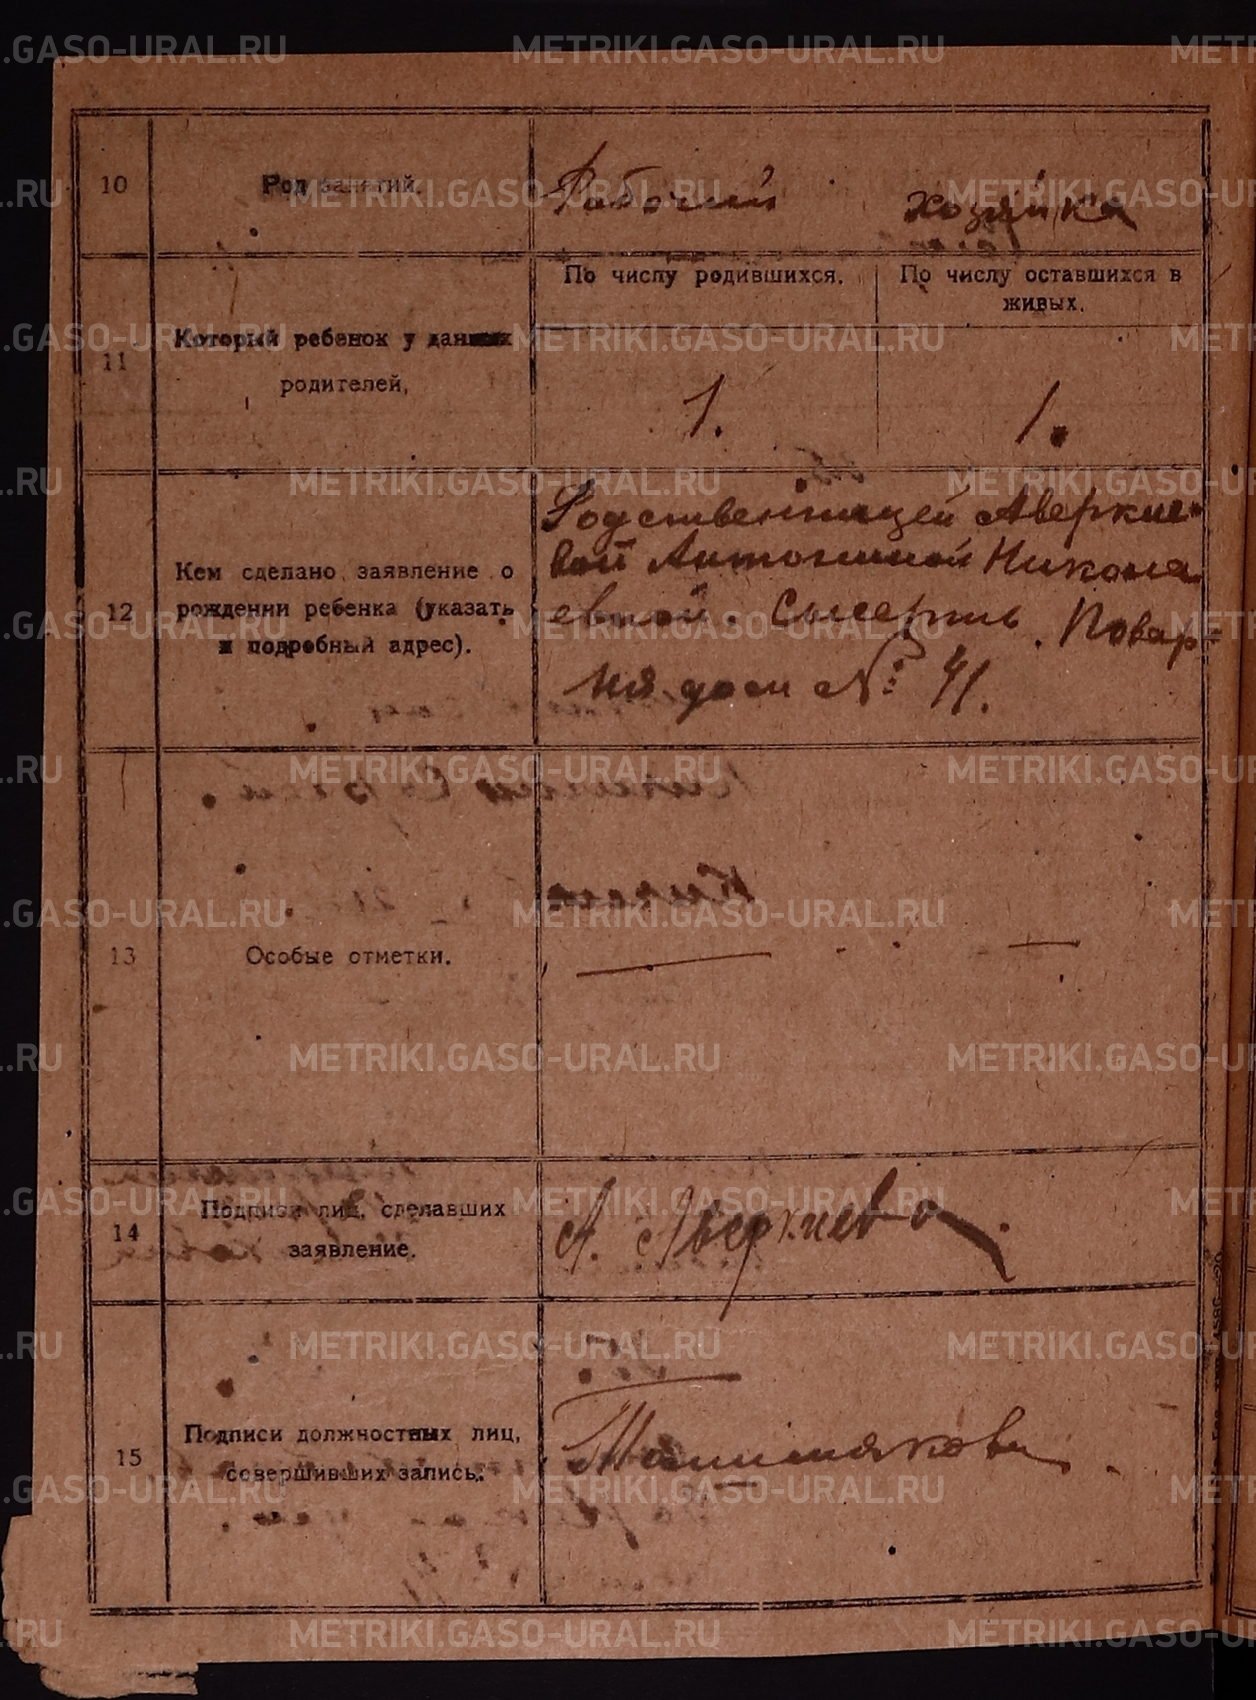 10
Род занятий.
Рабочий
хозяйка
11
Который ребенок у данных
родителей,
По числу родившихся.
По числу оставшихся в
живых.
1.
1.
12
Кем сделано заявление о
рождении ребенка (указать
и подробный адрес).
Родственницей Аверкие-
вой Антониной Никона
евной. Сысерть. Повар=
ня дом № 41.
13
Особые отметки.
14
Подписи лиц, сделавших
заявление.
А. Аверкиева.
15
Подписи должностных лиц,
совершивших запись.
METRIKI.GASO-URAL.RU